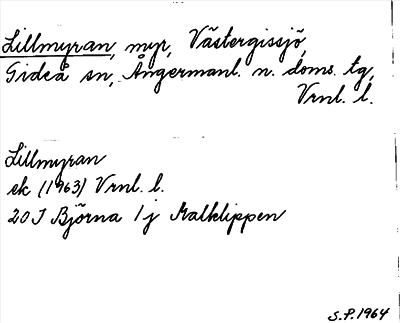 Lillmyran, myr, Västergissjö,
Gideå sn, Ångermanl. n. doms. tg,
Vrnl. l.
Lillmyran
ek (1963) Vrnl. l.
20 I Björna 1 j Malklippen
S.P. 1964